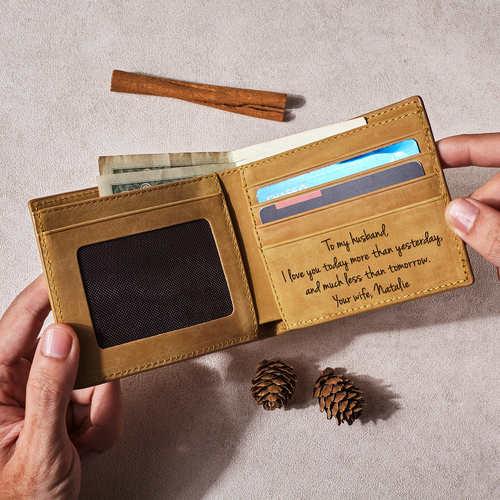 To my husband,
I love you today more than yesterday,
and much less than tomorrow.
Your wife, Natalie